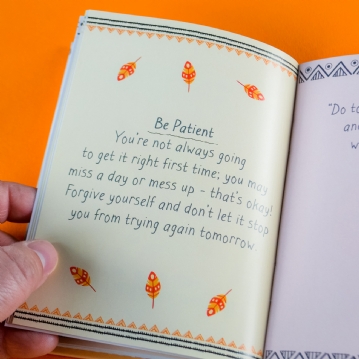 Be Patient
You're not always going
to get it right first time; you may
miss a day or mess up - that's okay!
Forgive yourself and don't let it stop
you from trying again tomorrow.
"Do to
an
w